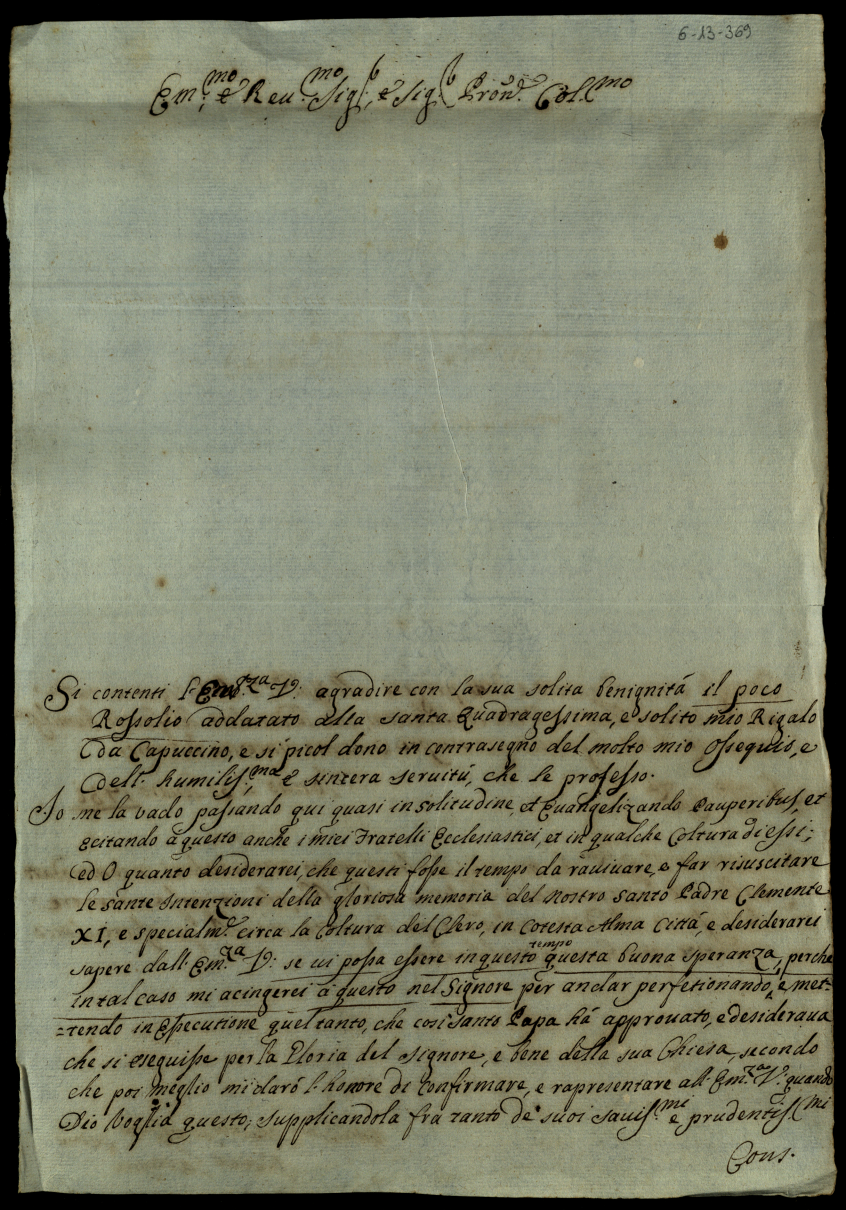 6-13-369
Em.mo e Reu.mo Sig.r, e Sig.r Pron. Col.mo
Si contenti l'Em.za V: agradire con la sua solita benignitá il poco
Rossolio addatato alla santa Quadragessima, e solito mio Rigalo
da Capuccino, e si picol dono in contrasegno del molto mio ossequis, e
dell' humiliss.ma e sincera seruitú, che le professo.
Io me la vado passando qui quasi in solitudine, et Euangelizando Pauperibus, et
ecitando a questo anche i miei Fratelli Ecclesiastici, et in qualche Coltura di essi;
ed O quanto desiderarei, che questi fosse il tempo da rauiuare, e far risuscitare
le sante Intenzioni della gloriosa memoria del nostro santo Padre Clemente
XI, e specialm.e circa la Coltura del Clero, in cotesta Alma Cittá, e desiderarei
sapere dall' Em.za V: se ui possa essere in questo tempo questa buona speranza, perche
in tal caso mi acingerei a questo nel Signore per andar perfetionando, e met-
=tendo in Essecutione quel tanto, che cosi santo Papa há approuato, e desideraua
che si eseguisse per la Gloria del signore, e bene della sua Chiesa, secondo
che poi meglio mi daró l'honore di Confirmare, e rapresentare all' Em.za V: quando
Dio Voglia questo; supplicandola fra tanto de' suoi sauiss.mi e prudentiss.mi
Cons.